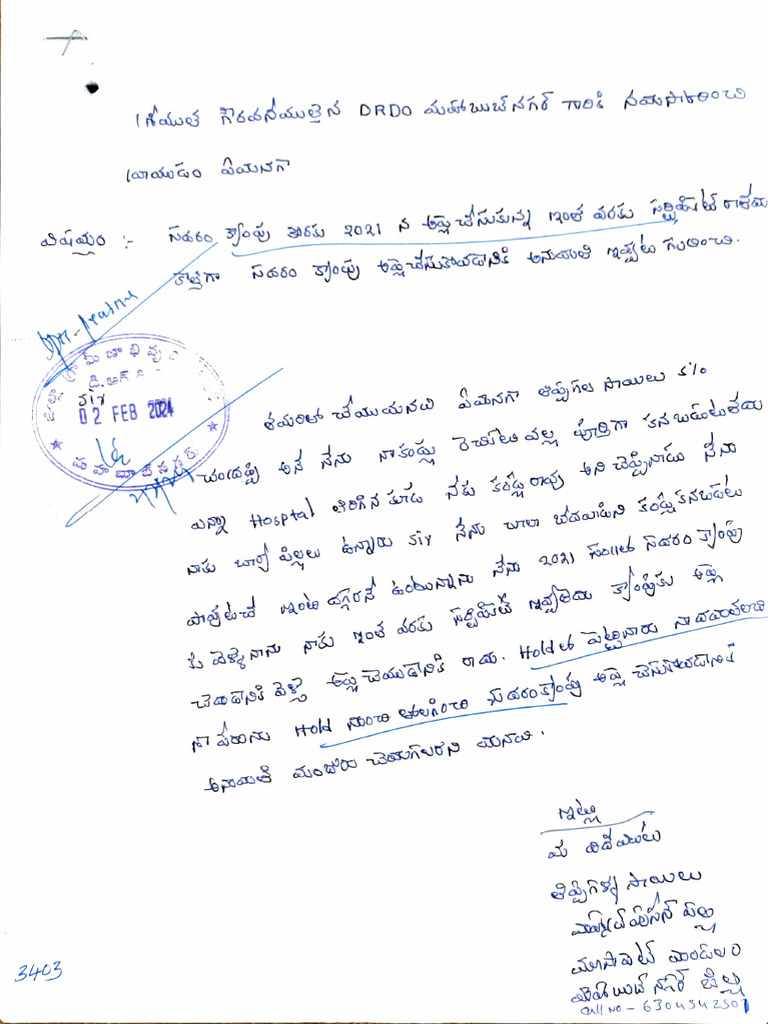 శ్రీయుత గౌరవనీయులైన DRDO మహాబుబ్ నగర్ గారికి నమస్కరించి
వ్రాయుడం ఏమనగా
విషయం :- సదరం క్యాంపు కొరకు 2021 న అప్లై చేసుకున్న ఇంత వరకు సర్టిఫికెట్ రాలేదు
కొత్తగా సదరం క్యాంపు అప్లై చేసుకోవడానికి అనుమతి ఇప్పుట గురించి.
డి.ఆర్
02 FEB 2024
మహబూబ్ నగర్
తమరితో చేయుమనవి ఏమనగా తిప్పగల సాయిలు S/o
చంద్రప్ప అనే నేను నా కండ్లు వల్ల పూర్తిగా కనబడుటలేదు
ఎన్నో Hosptal తిరిగిన కూడ నీకు కండ్లు రావు అని చెప్పినారు నేను
నాకు భార్య పిల్లలు ఉన్నారు Sir నేను చాలా బేదవాడిని కండ్లు కనబడలు
ఇంటి దగ్గరనే ఉంటున్నాను నేను 2021 సంలలో సదరం క్యాంపు
కు వెళ్ళినాను నాకు ఇంత వరకు సర్టిఫికెట్ ఇవ్వలేదు క్యాంపుకు అప్లై
చేయడానికి వెళ్తె అప్లై చేయుడానికి రాదు. Hold లో పెట్టినారు నా
నా పేరును Hold నుంచి తొలగించి సదరం క్యాంపు అప్లై చేసుకోవడానికి
అనుమతి మంజూరు చేయగలరని మనవి.
ఇట్లు
మీ విదేయులు
తిప్పగళ్ళ సాయిలు
మూసాపేట్ మండలం
మహబుబ్ నగర్ జిల్లా
Cell No - 6304542501
3403